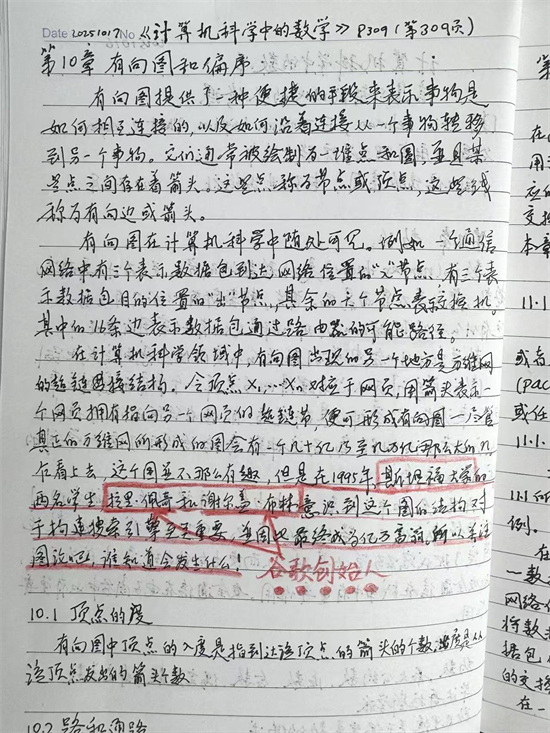 Date 20251017 No 《计算机科学中的数学》P309(第309页)
第10章 有向图和偏序
有向图提供了一种便捷的手段来表示事物是
如何相互连接的,以及如何沿着连接从一个事物转移
到另一个事物。它们通常被绘制为一堆点和圆,并且某
些点之间存在着箭头。这些点称为节点或顶点,这些线
称为有向边或箭头。
有向图在计算机科学中随处可见。例如一个通信
网络中有三个表示数据包到达网络位置的“入”节点,有三个表
示数据包目的位置的“出”节点,其余的六个节点表示交换机。
其中的16条边表示数据包通过路由器的可能路径。
在计算机科学领域中,有向图出现的另一个地方是万维网
的超链接结构。令顶点X₁,…Xn对应于网页,用箭头表示一
个网页拥有指向另一个网页的超链节,便可形成有向图一尽管
真正的万维网所形成的图会有一个几十亿乃至几万亿那么大的n,
乍看上去,这个图并不那么有趣,但是在1995年,斯坦福大学的
两名学生 拉里·佩奇和谢尔盖·布林意识到这个图的结构对
于构造搜索引擎至关重要,并因此最终成为亿万富翁,所以关注
图论吧,谁知道会发生什么!
谷歌创始人
10.1 顶点的度
有向图中顶点的入度是指到达该顶点的箭头的个数,出度是从
该顶点发出的箭头个数
10.2 路和通路
第
在
用
应的
交换
本章
11.1
或者
(pac
或任
11.1.
11.1何
例。
在
一数
网络
将数
接包
的支持
在一